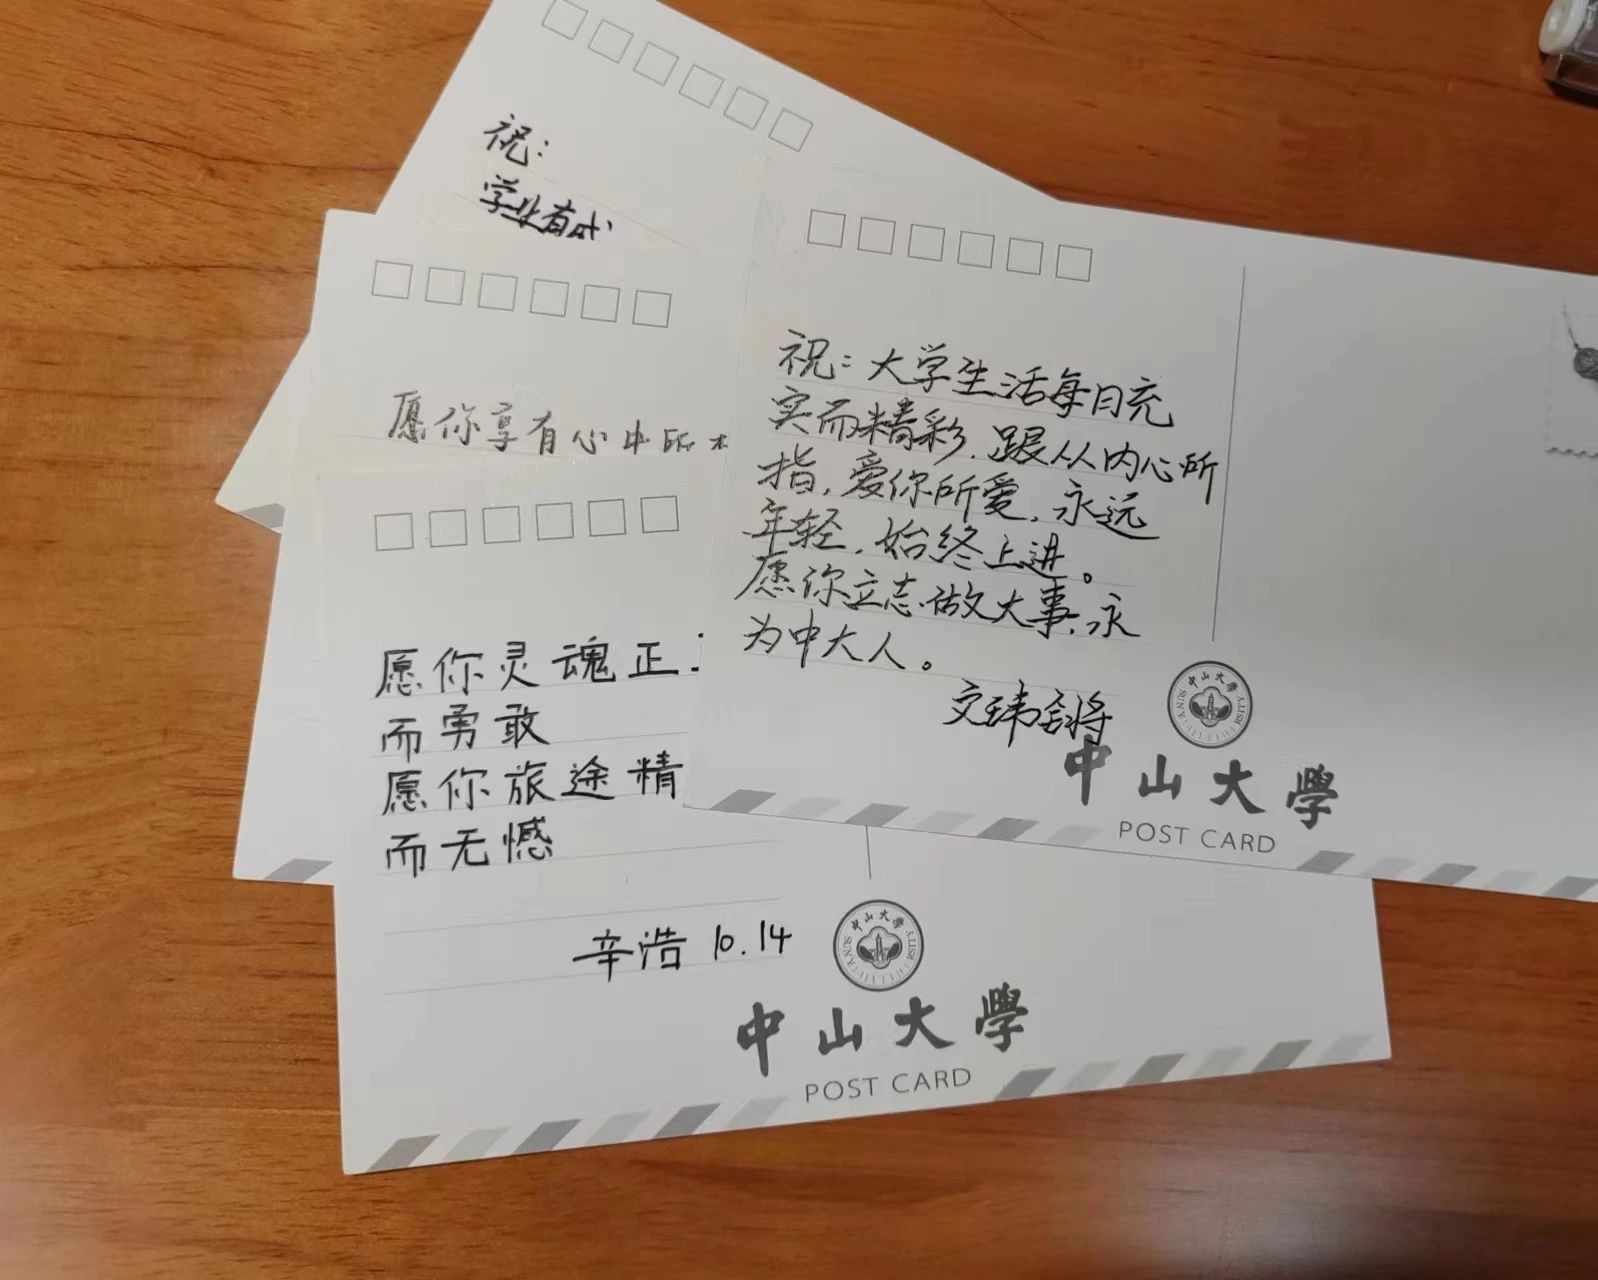 祝：
学业有成
愿你享有心中所
祝：大学生活每日充
实而精彩，跟从内心所
指，爱你所爱，永远
年轻，始终上进。
愿你立志做大事，永
为中大人。
中山大學
中山大學
POST CARD
愿你灵魂正
而勇敢
愿你旅途精
而无憾
辛浩 10.14
中山大學
中山大學
POST CARD